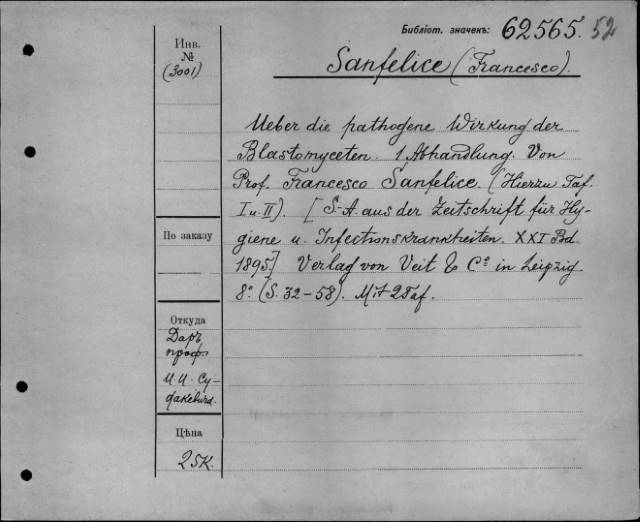 Библіот. значекъ: 62565. 52
Инв. №
(3001)
Sanfelice (Francesco).
Ueber die pathogene Wirkung der
Blastomyceten. 1 Abhandlung. Von
Prof. Francesco Sanfelice. (Hierzu Taf.
I u. II). [S-A. aus der Zeitschrift für Hy-
giene u. Infectionskrankheiten. XXI Bd.
1895] Verlag von Veit & Cº in Leipzig.
8º. (S. 32-58). Mit 2 Taf.
По заказу
Откуда
Даръ
проф.
И. И. Су-
дакевича.
Цѣна
25К.